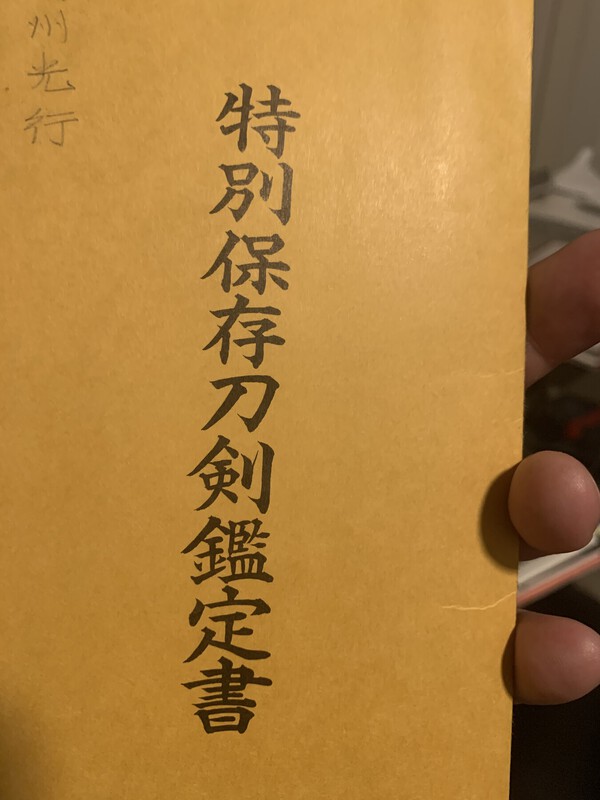 特別保存刀剣鑑定書
州光行